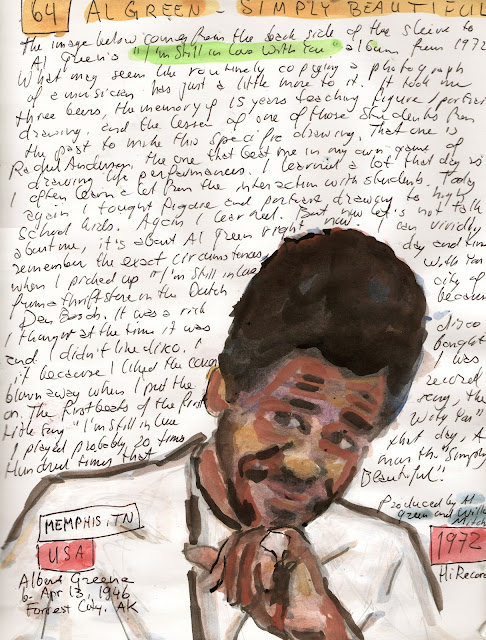 64 AL GREEN - SIMPLY BEAUTIFUL
The image below comes from the back side of the sleeve to
Al Green's "I'm Still in Love With You" album from 1972
What may seem like routinely copying a photograph
of a musician has just a little more to it. It took me
three beers, the memory of 15 years teaching figure/portrait
drawing, and the lesson of one of those students from
the past to make this specific drawing. That one is
Rachel Anderson, the one that beat me in my own game of
drawing life performances. I learned a lot that day as
I often learn a lot from the interaction with students. Today
again I tought figure and portrait drawing to high
school kids. Again I learned. But now let's not talk
about me, it's about Al Green right now. I can vividly
remember the exact circumstances day and time
when I picked up "I'm Still in Love With You"
from a thriftstore in the Dutch city of
Den Bosch. It was a rich because
I hunger at the time it was disco
and I didn't like disco. I bought
it because I liked the cover I was
blown away when I put the record
on. The first beats of the first song, the
title song "I'm Still in Love With You"
I played probably 20 times that day, A
Hundred times that was the "Simply
Beautiful".
Produced by Al
Green and Willie
Mitchell
MEMPHIS, TN
USA
1972
Hi Records
Albert Greene
b. Apr 13, 1946
Forrest City, AK